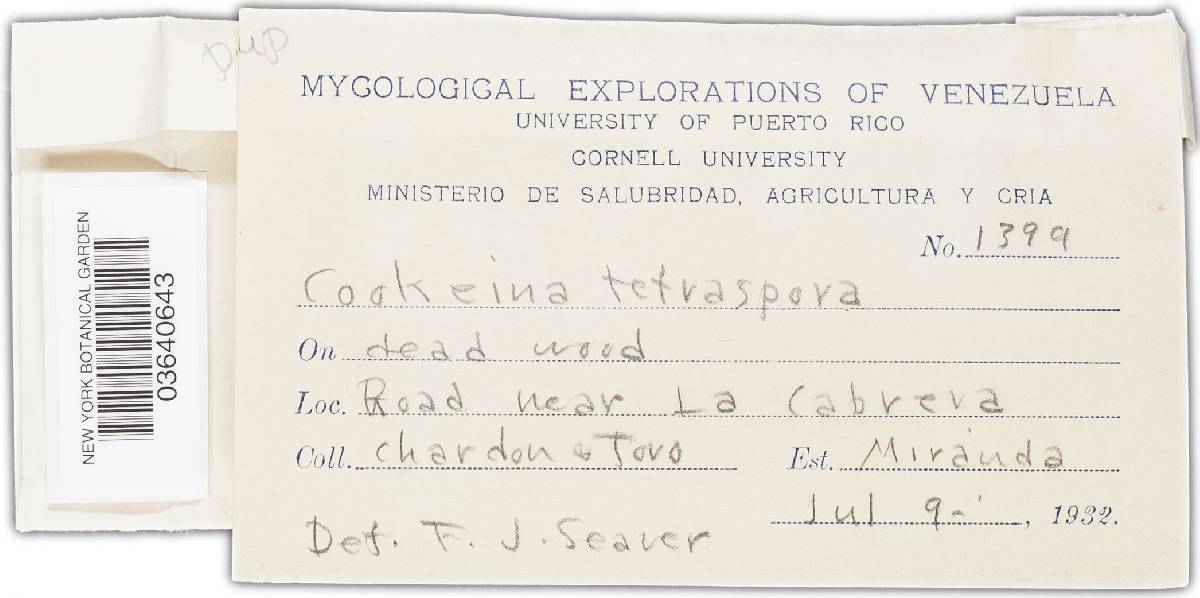 DMP
MYCOLOGICAL EXPLORATIONS OF VENEZUELA
UNIVERSITY OF PUERTO RICO
CORNELL UNIVERSITY
MINISTERIO DE SALUBRIDAD, AGRICULTURA Y CRIA
No. 1399
Cookeina tetraspora
On dead wood
Loc. Road near La Cabrera
Coll. Chardon & Toro Est. Miranda
Jul 9-, 1932.
Det. F. J. Seaver
NEW YORK BOTANICAL GARDEN
03640643